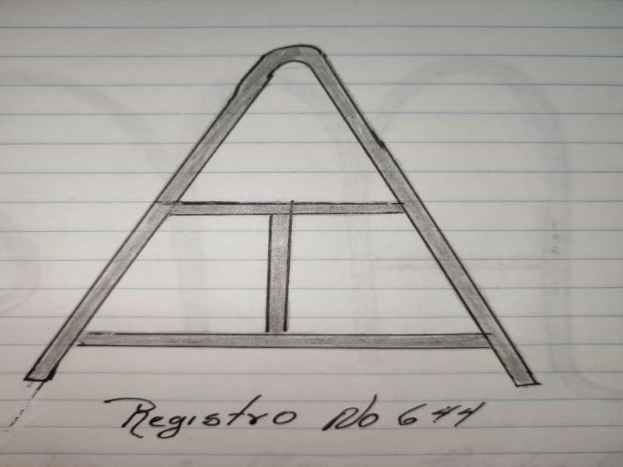 Registro No 644